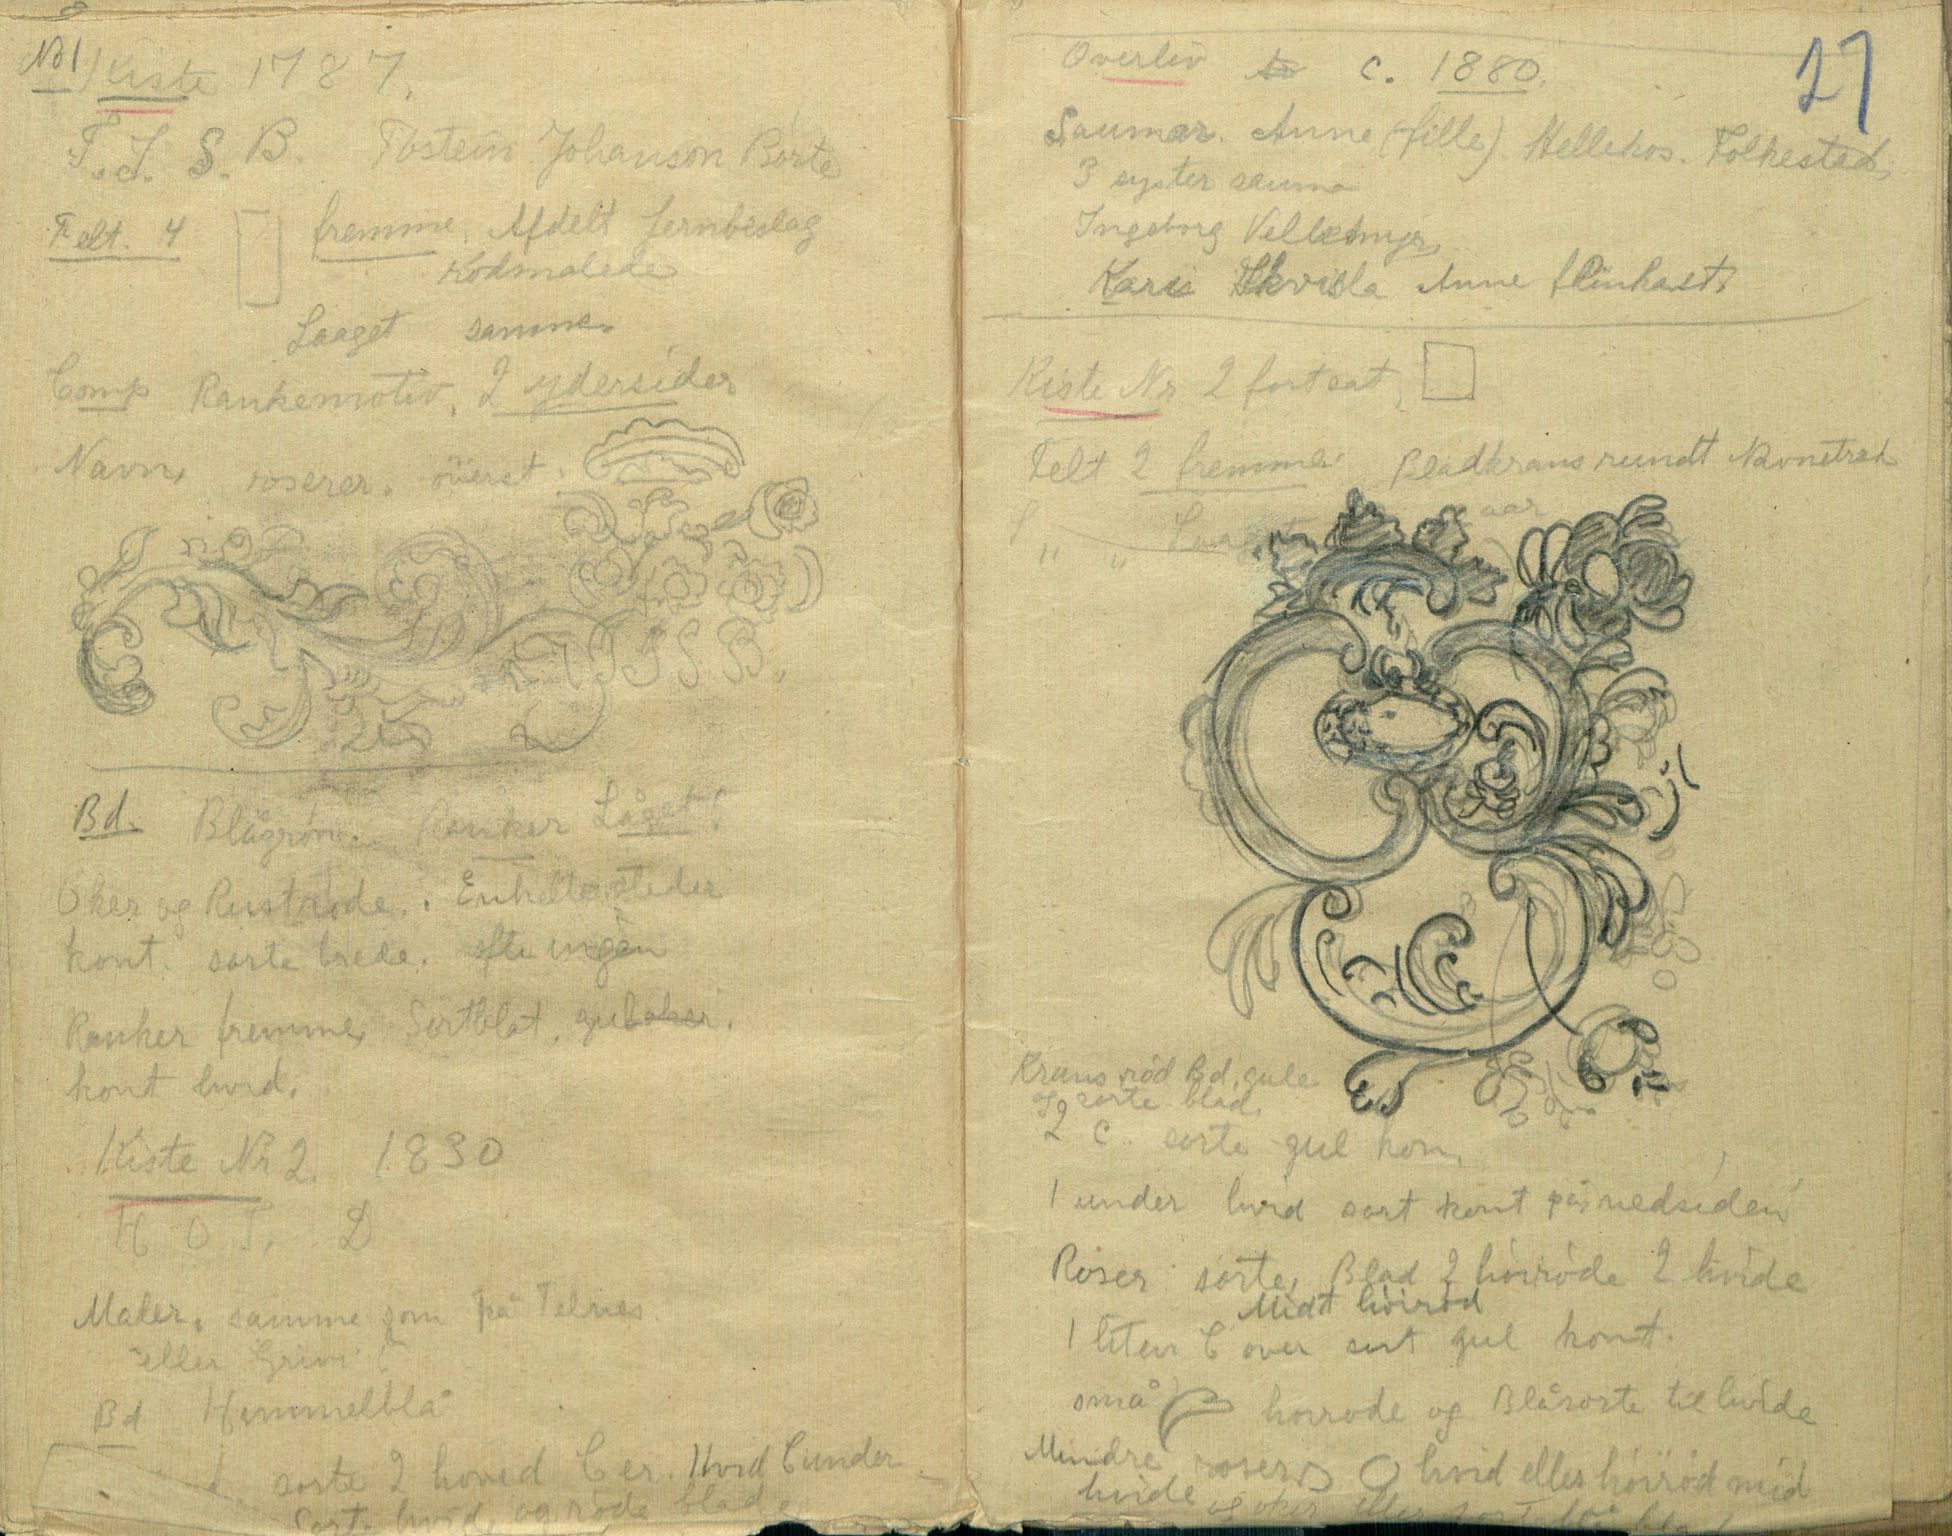 No 1) Kiste 1787.
T. J. S. B. Tostein Johanson Børte
Felt. 4 fremme. Afdelt Jernbeslag
Rødmalede
Laaget samme.
Comp Rankemotiv. 2 ydersider
Navn, roserer. överst.
T J S B.
Bd. Blågrön. Ranker Låget:
Oker og Rustrøde. Enkelte steder
kont. sorte brede.
Ranker fremme, Sortblåt, guloker.
kont hvid.
Kiste Nr 2. 1830
H O T. D
Maler. samme som på Telnes
eller Grivi?
Bd Himmelblå
sorte 2 hoved C er. Hvid C under
Sort. hvide og røde blade
27
Overliv c. 1880.
Saumar. Anne (fille) Hellekos. Folkestad,
3 syster sauma
Ingeborg
Kari Anne
Kiste Nr 2 fortsat.
Felt 2 fremme. Bladkrans rundt Monstret
" " aar
Krans rød Bd. gule
og sorte blad.
2 C. sorte gul kon.
1 under hvid sort kont på nedsiden
Roser sorte, Blad 2 høirøde 2 hvide
Midt høirød
1 liten C over sort gul kont.
små høirøde og Blåsorte til hvide
Mindre roser hvid eller høirød med
hvide og oker eller